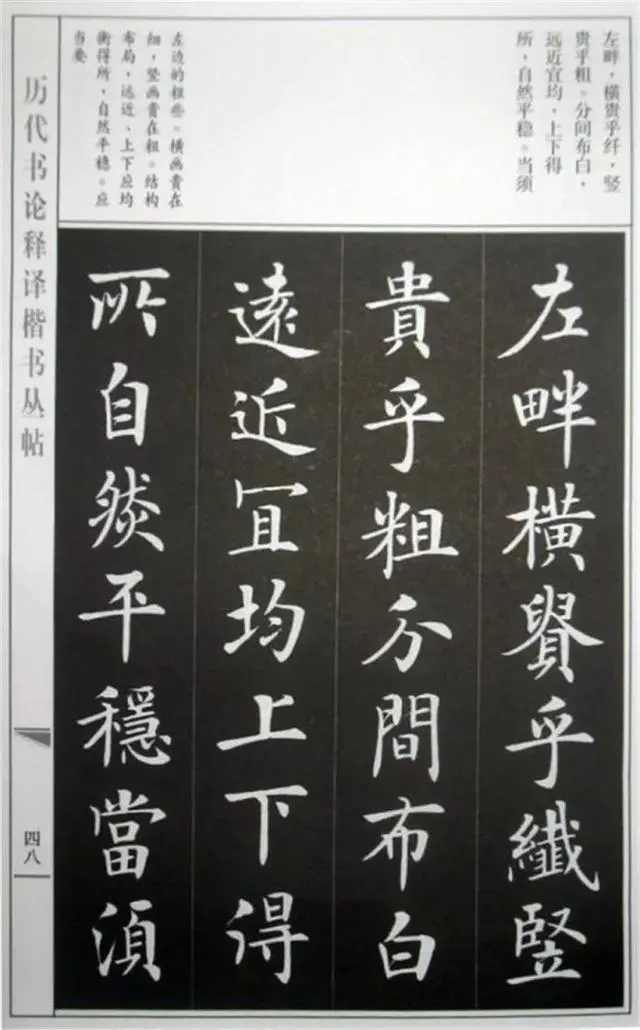 左畔，横贵乎纤，竖
贵乎粗。分间布白，
远近宜均，上下得
所，自然平稳。当须
左边的粗些。横画贵在
细，竖画贵在粗。结构
布局，远近、上下应均
衡得所，自然平稳。应
当要
左畔橫貴乎纖竪
貴乎粗分間布白
遠近宜均上下得
所自然平穩當須
历代书论释译楷书丛帖
四八